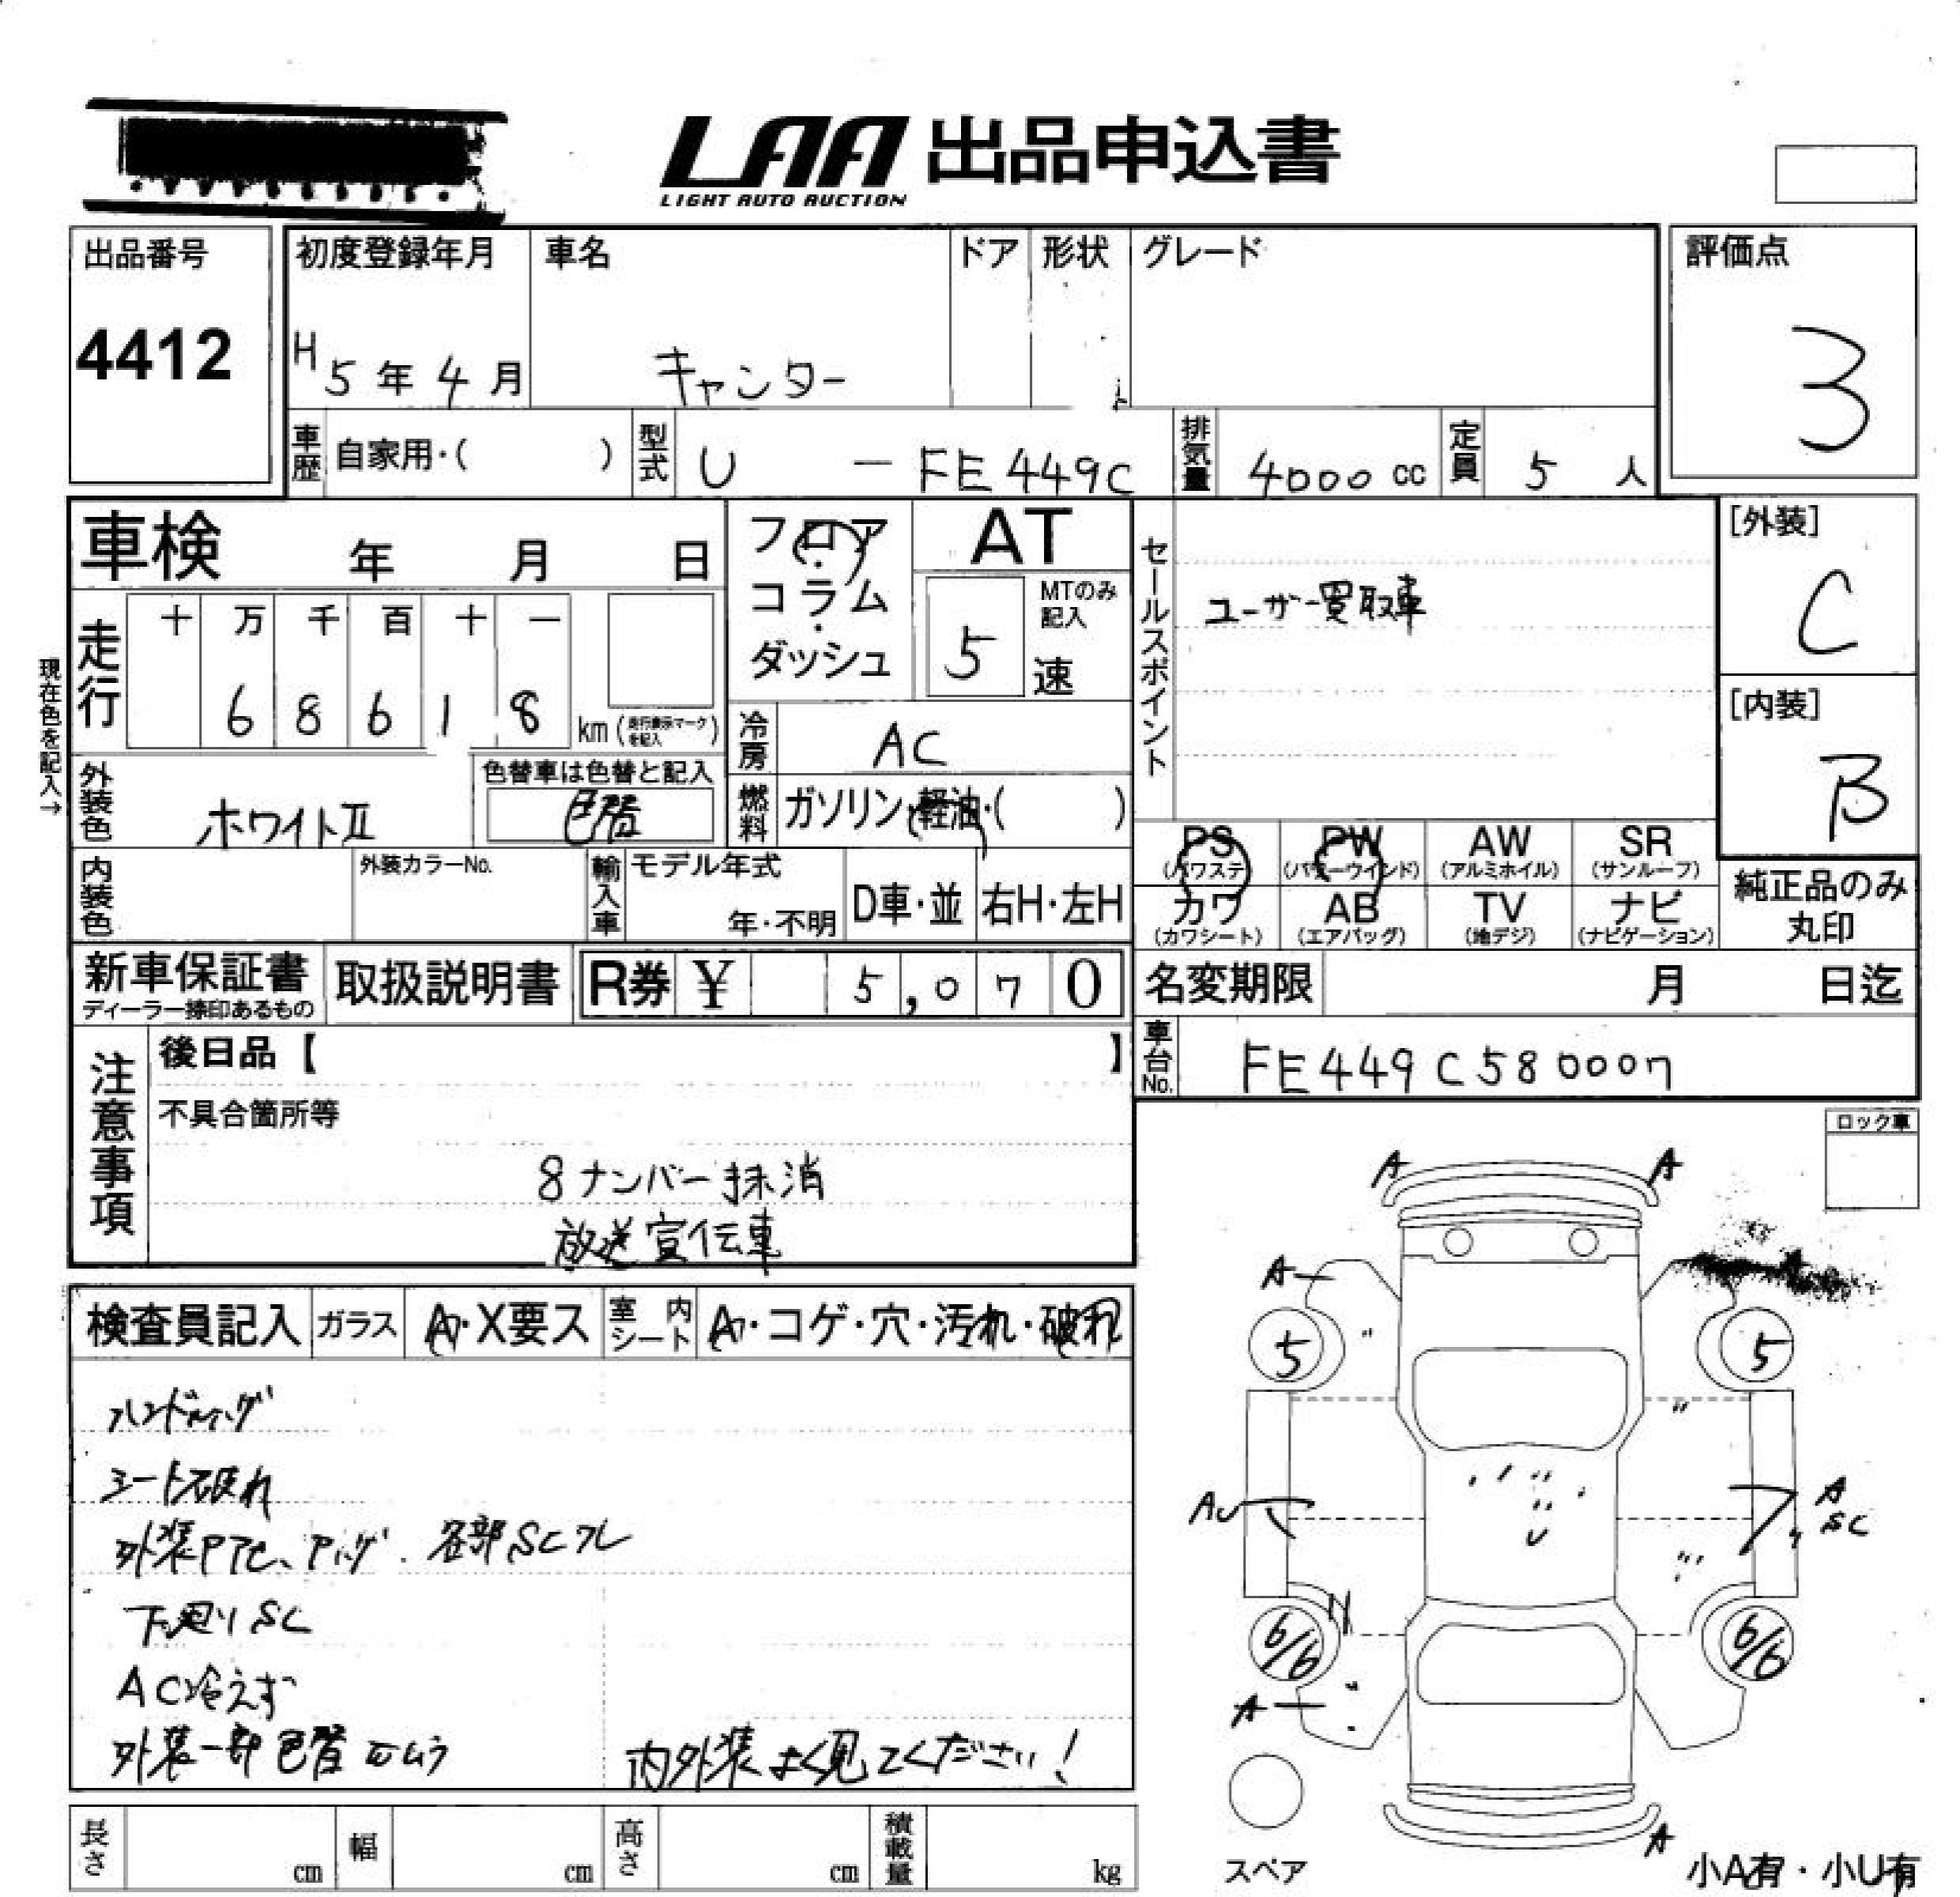 LAA 出品申込書
LIGHT AUTO AUCTION
出品番号
4412
初度登録年月
H 5 年 4 月
車名
キャンター
ドア
形状
グレード
評価点
3
車歴 自家用・( )
型式 U - FE449C
排気量 4000 cc
定員 5 人
車検 年 月 日
フロア・コラム・ダッシュ
AT
MTのみ記入
5 速
セールスポイント
ユーザー買取車
[外装]
C
[内装]
B
現在色を記入→
走行
十 万 千 百 十 一
6 8 6 1 8 km (走行表示マークを記入)
冷房 AC
外装色 ホワイトⅡ
色替車は色替と記入
色替
燃料 ガソリン・軽油・( )
PS (パワステ) PW (パワーウインド) AW (アルミホイル) SR (サンルーフ)
カワ (カワシート) AB (エアバッグ) TV (地デジ) ナビ (ナビゲーション)
純正品のみ丸印
内装色
外装カラーNo.
輸入車 モデル年式 年・不明 D車・並 右H・左H
新車保証書 ディーラー捺印あるもの
取扱説明書
R券 ¥ 5,070
名変期限 月 日迄
車台No. FE449C580007
注意事項
後日品【 】
不具合箇所等
8ナンバー抹消
放送宣伝車
ロック車
検査員記入 ガラス A・X要ス 室内シート A・コゲ・穴・汚れ・破れ
シート破れ
各部SC
下廻りSC
AC冷えず
外装一部色替 ムラ
内外装よく見てください!
A A
A
5 5
AU
A
SC
6/6 6/6
A
A
スペア
小A有・小U有
長さ cm 幅 cm 高さ cm 積載量 kg